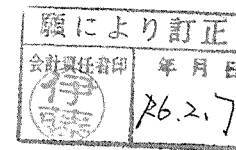 願により訂正
会計責任者印
年月日
伊藤
R6.2.7